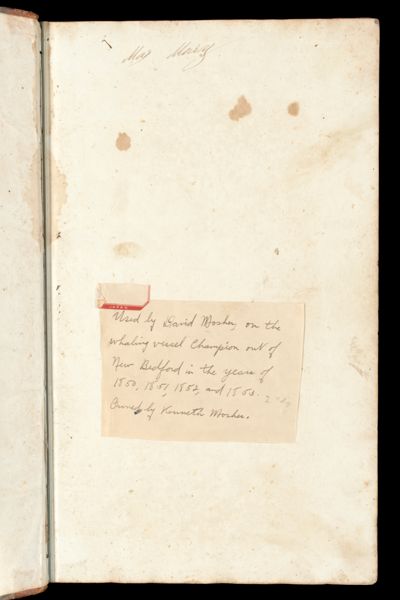 Mary
Used by David Mosher, on the
whaling vessel Champion out of
New Bedford in the years of
1850, 1851, 1852, and 1853.
Owned by Kenneth Mosher.